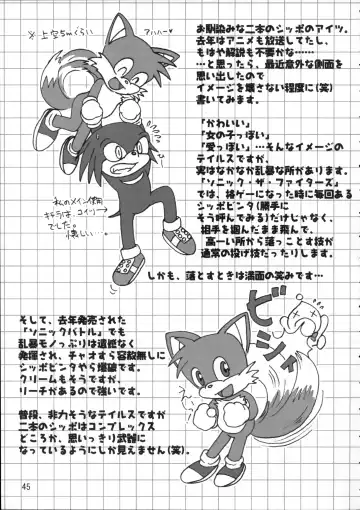 ※上空ちゅくらい
アハハー
お馴染みな二本のシッポのアイツ。
去年はアニメも放送してたし、
もはや解説も不要かな……
…と思ったら、最近意外な側面を
思い出したので
イメージを壊さない程度に(笑)
書いてみます。
「かわいい」
「女の子っぽい」
「愛っぽい」…そんなイメージの
テイルスですが、
実はなかなか乱暴な所があります。
「ソニック・ザ・ファイターズ」
では、格ゲーになった時に毎回ある
シッポビンタ(勝手に
そう呼んでみる)だけじゃなく、
相手を掴んだまま飛んで、
高ーい所から落っことす技が
通常の投げ技だったりします。
しかも、落とすときは満面の笑みです…
私のメイン使用
キャラは、コイツ→
でした。
懐しい…。
ビシッ
そして、去年発売された
「ソニックバトル」でも
乱暴モノっぷりは遺憾なく
発揮され、チャオすら容赦無しに
シッポビンタやら爆破です。
クリームもそうですが、
リーチがあるので強いです。
普段、非力そうなテイルスですが
二本のシッポはコンプレックス
どころか、思いっきり武器に
なっているようにしか見えません(笑)。
45